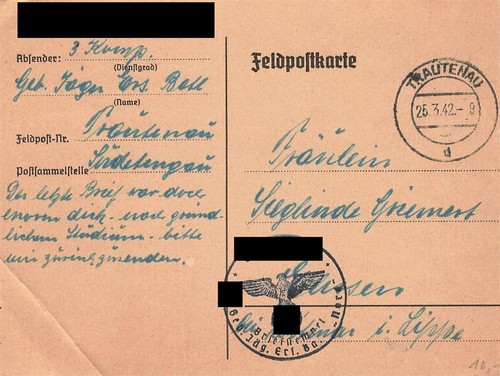 Absender: 3 Komp.
(Dienstgrad)
Geb. Jäger Ers. Batl.
(Name)
Feldpost-Nr. Trautenau
Postsammelstelle Sudetengau
Der letzte Brief war doch
enorm dick - nach gründ-
lichem Studium - bitte
um zurückzusenden.
Feldpostkarte
TRAUTENAU
25.3.42.-9
d
Fräulein
Sieglinde
bei i. Lippe
Briefstempel
Geb. Jäg. Ers.
10,-